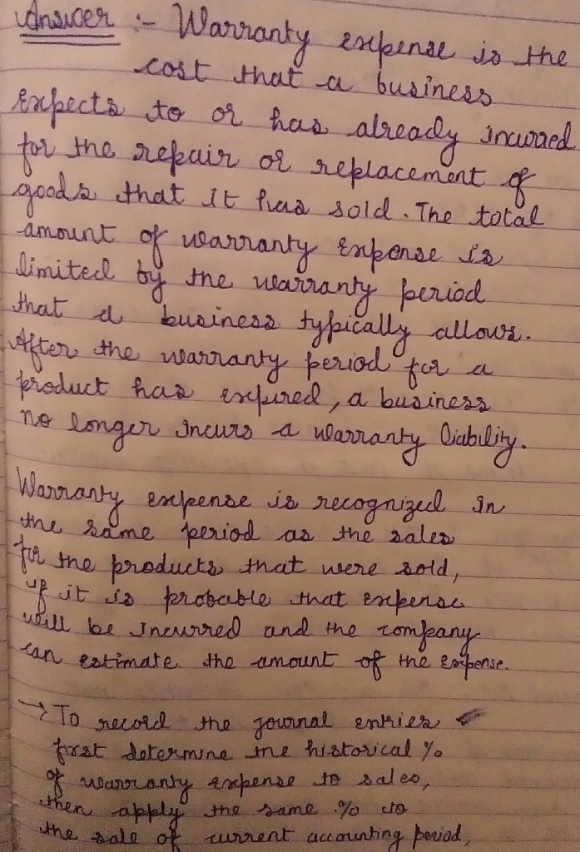 Answer :- Warranty expense is the
cost that a business
expects to or has already incurred
for the repair or replacement of
goods that it has sold. The total
amount of warranty expense is
limited by the warranty period
that a business typically allows.
After the warranty period for a
product has expired, a business
no longer incurs a warranty liability.
Warranty expense is recognized in
the same period as the sales
for the products that were sold,
if it is probable that expense
will be incurred and the company
can estimate the amount of the expense.
→ To record the journal entries
first determine the historical %
of warranty expense to sales,
then apply the same % to
the sale of current accounting period,